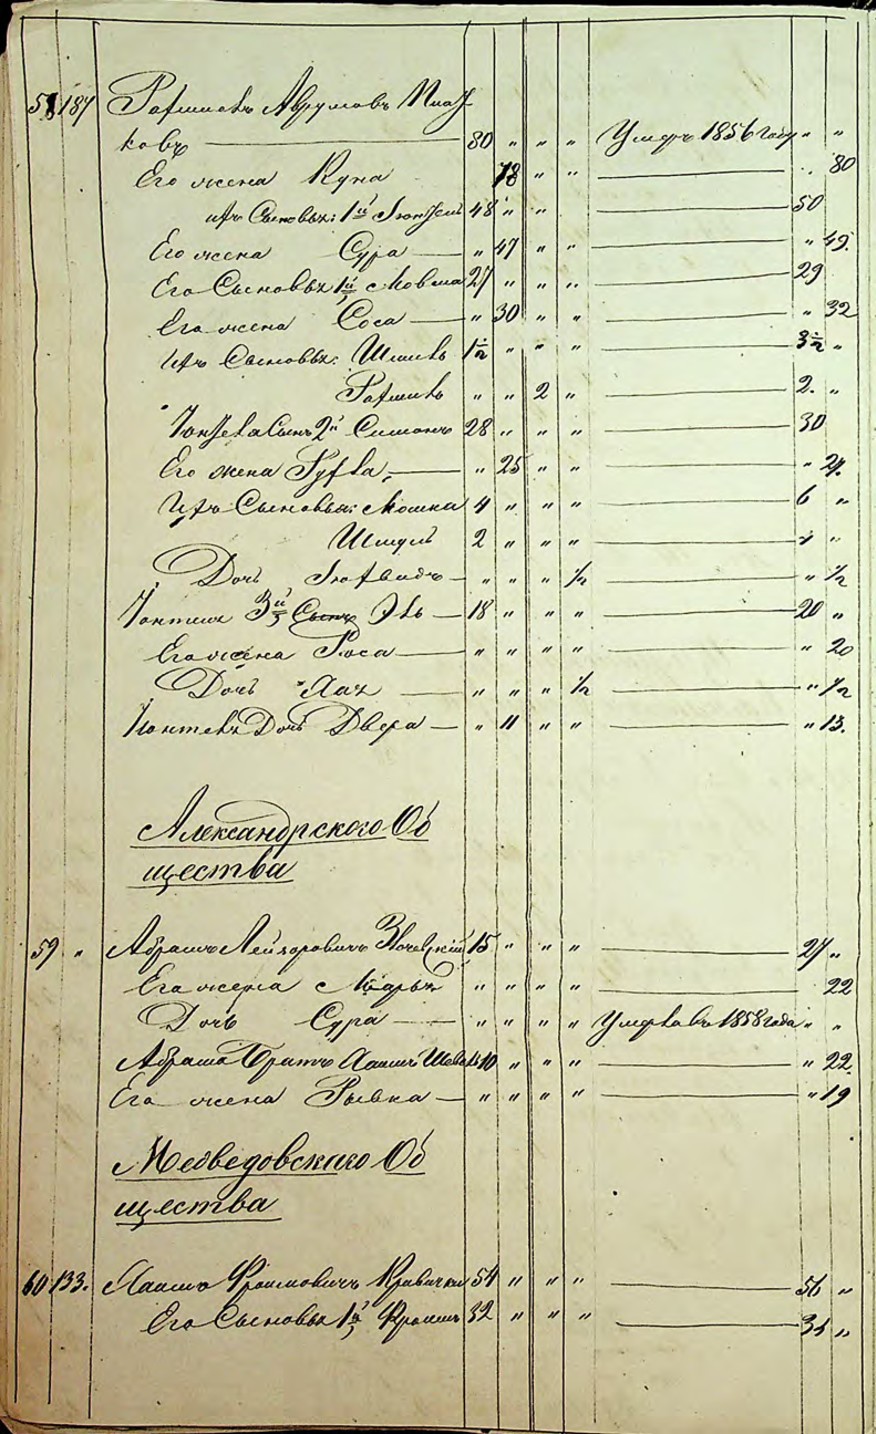 58 187 Рахмиель Аврумовъ
ковъ 80 " " " Умеръ 1856 году " "
Его жена Куна 78 " " " 80
ихъ Сыновья: 1й 48 " " 50
Его жена Сура " 47 " " " 49.
Его Сыновья 1й Мовша 27 " " " 29
Его жена Соса " 30 " " " 32
Ихъ Сыновья: Шмиль 1½ " " " 3½ "
" " 2 " 2. "
Сынъ 2й Симонъ 28 " " " 30
Его жена " 25 " " " 27.
Ихъ Сыновья: Мошка 4 " " " 6 "
Шмуль 2 " " " 4 "
Дочь " " " ½ " ½
3й Сынъ 18 " " " 20 "
Его жена Роса " " " " " 20
Дочь Хая " " " ½ " ½
Дочь Двера " 11 " " " 13.
Александрского Об
щества
59 " Абрамъ Лейзоровичъ 15 " " " 27 "
Его жена Марья " " " " 22
Дочь Сура " " " " Умерла въ 1858 года " "
Абрама Братъ Хаимъ 10 " " " " 22.
Его жена Рывка " " " " " 19
Медведовскаго Об
щества
60 133. Хаимъ Фроимовичъ 54 " " " 56 "
Его Сыновья 1й Фроимъ 32 " " " 34 "